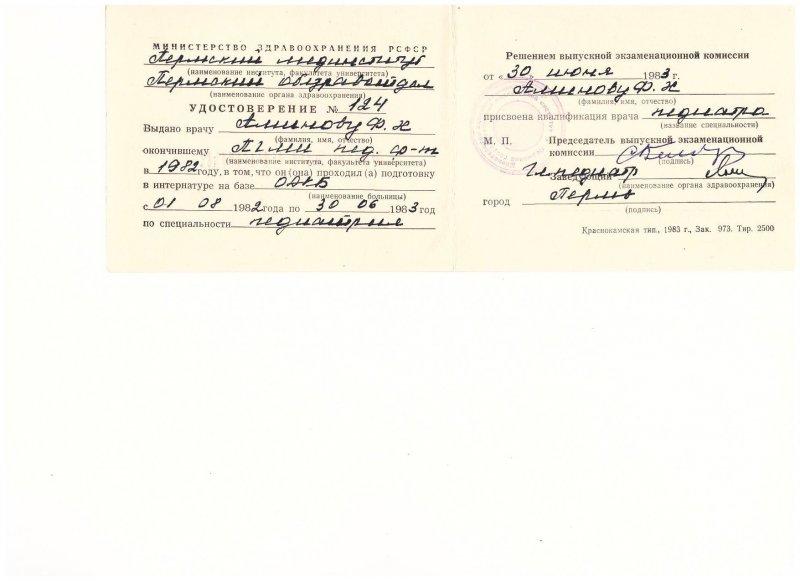 МИНИСТЕРСТВО ЗДРАВООХРАНЕНИЯ РСФСР
Пермский мединститут
(наименование института, факультета университета)
Пермский облздравотдел
(наименование органа здравоохранения)
УДОСТОВЕРЕНИЕ № 124
Выдано врачу Аминову Ф. Х
(фамилия, имя, отчество)
окончившему ПГМИ пед. ф-т
(наименование института, факультета университета)
в 1982 году, в том, что он (она) проходил (а) подготовку
в интернатуре на базе ОДКБ
(наименование больницы)
с 01 08 1982 года по 30 06 1983 год
по специальности педиатрия
Решением выпускной экзаменационной комиссии
от « 30 » июня 1983 г.
Аминову Ф. Х
(фамилия, имя, отчество)
присвоена квалификация врача педиатра
(название специальности)
М. П. Председатель выпускной экзаменационной
комиссии
(подпись)
Гл. педиатр
Заведующий
(наименование органа здравоохранения)
город Пермь
(подпись)
Краснокамская тип., 1983 г., Зак. 973. Тир. 2500